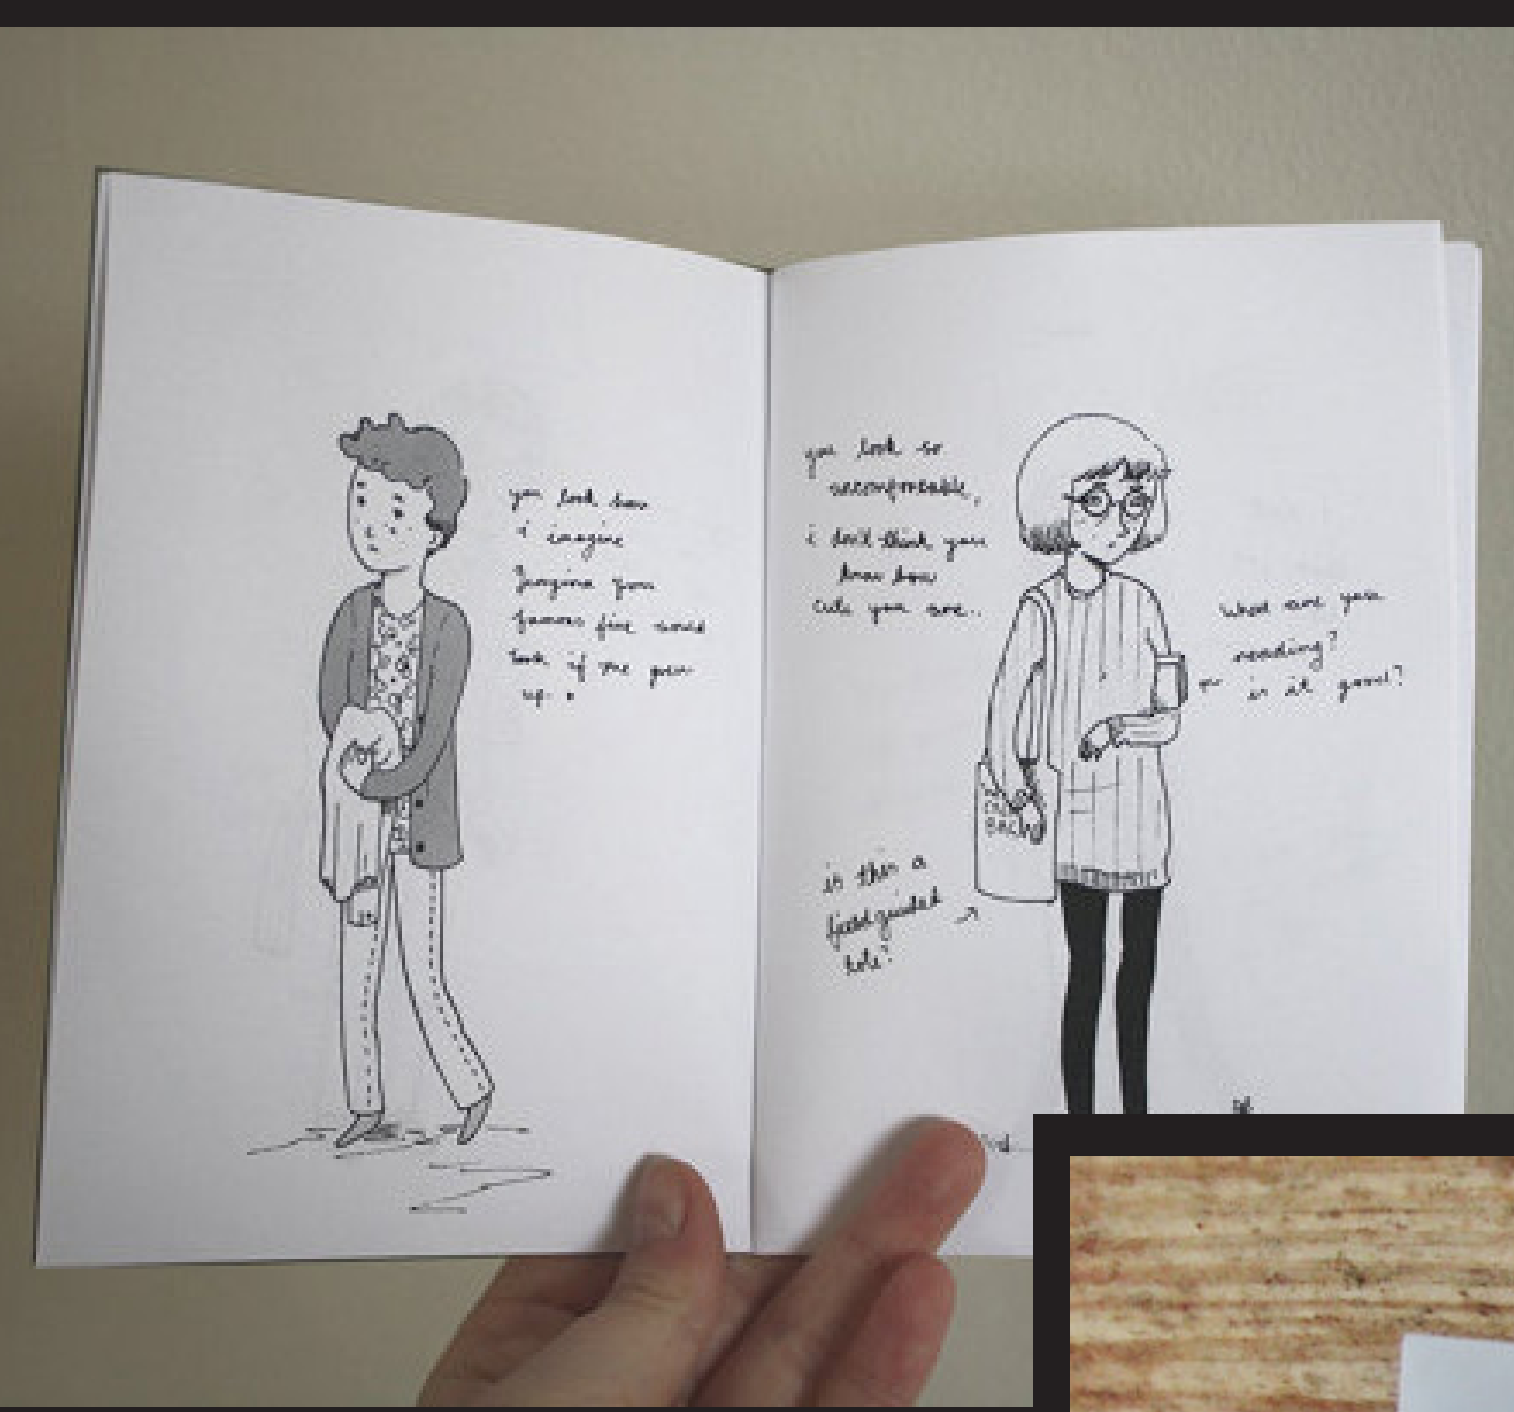 you look how
i imagine
you
famous five would
look if they grew
up.
you look so
uncomfortable,
i don't think you
know how
cute you are..
what are you
reading?
is it good?
is this a
tote?